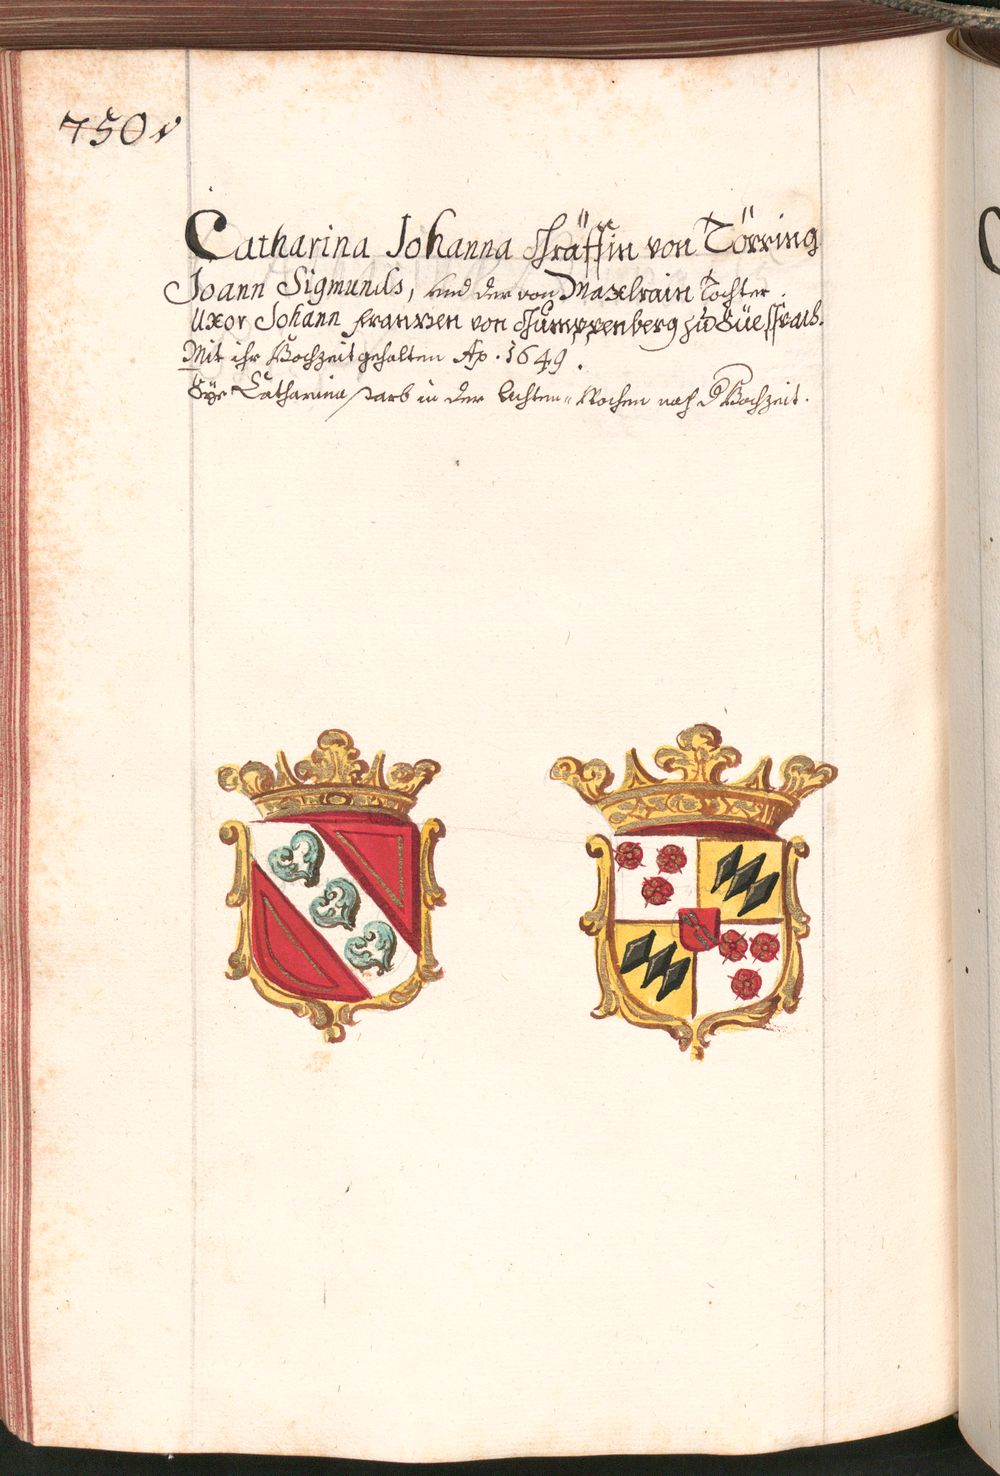 750v
Catharina Johanna Gräffin von Törring
Joann Sigmunds, und der von Maxlrain Tochter.
Uxor Johann Franzen von Gumppenberg zu
Mit ihr Hochzeit gehalten Ao. 1649.
Dise Catharina starb in der Achten Wochen nach d Hochzeit.